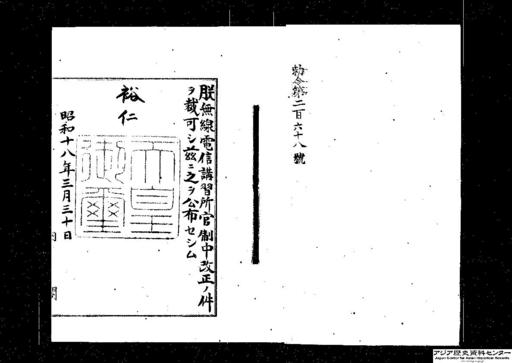 勅令第二百六十八號
朕無線電信講習所官制中改正ノ件
ヲ裁可シ茲ニ之ヲ公布セシム
裕仁
天皇
御璽
昭和十八年三月三十日
内
閣
アジア歴史資料センター
Japan Center for Asian Historical Records